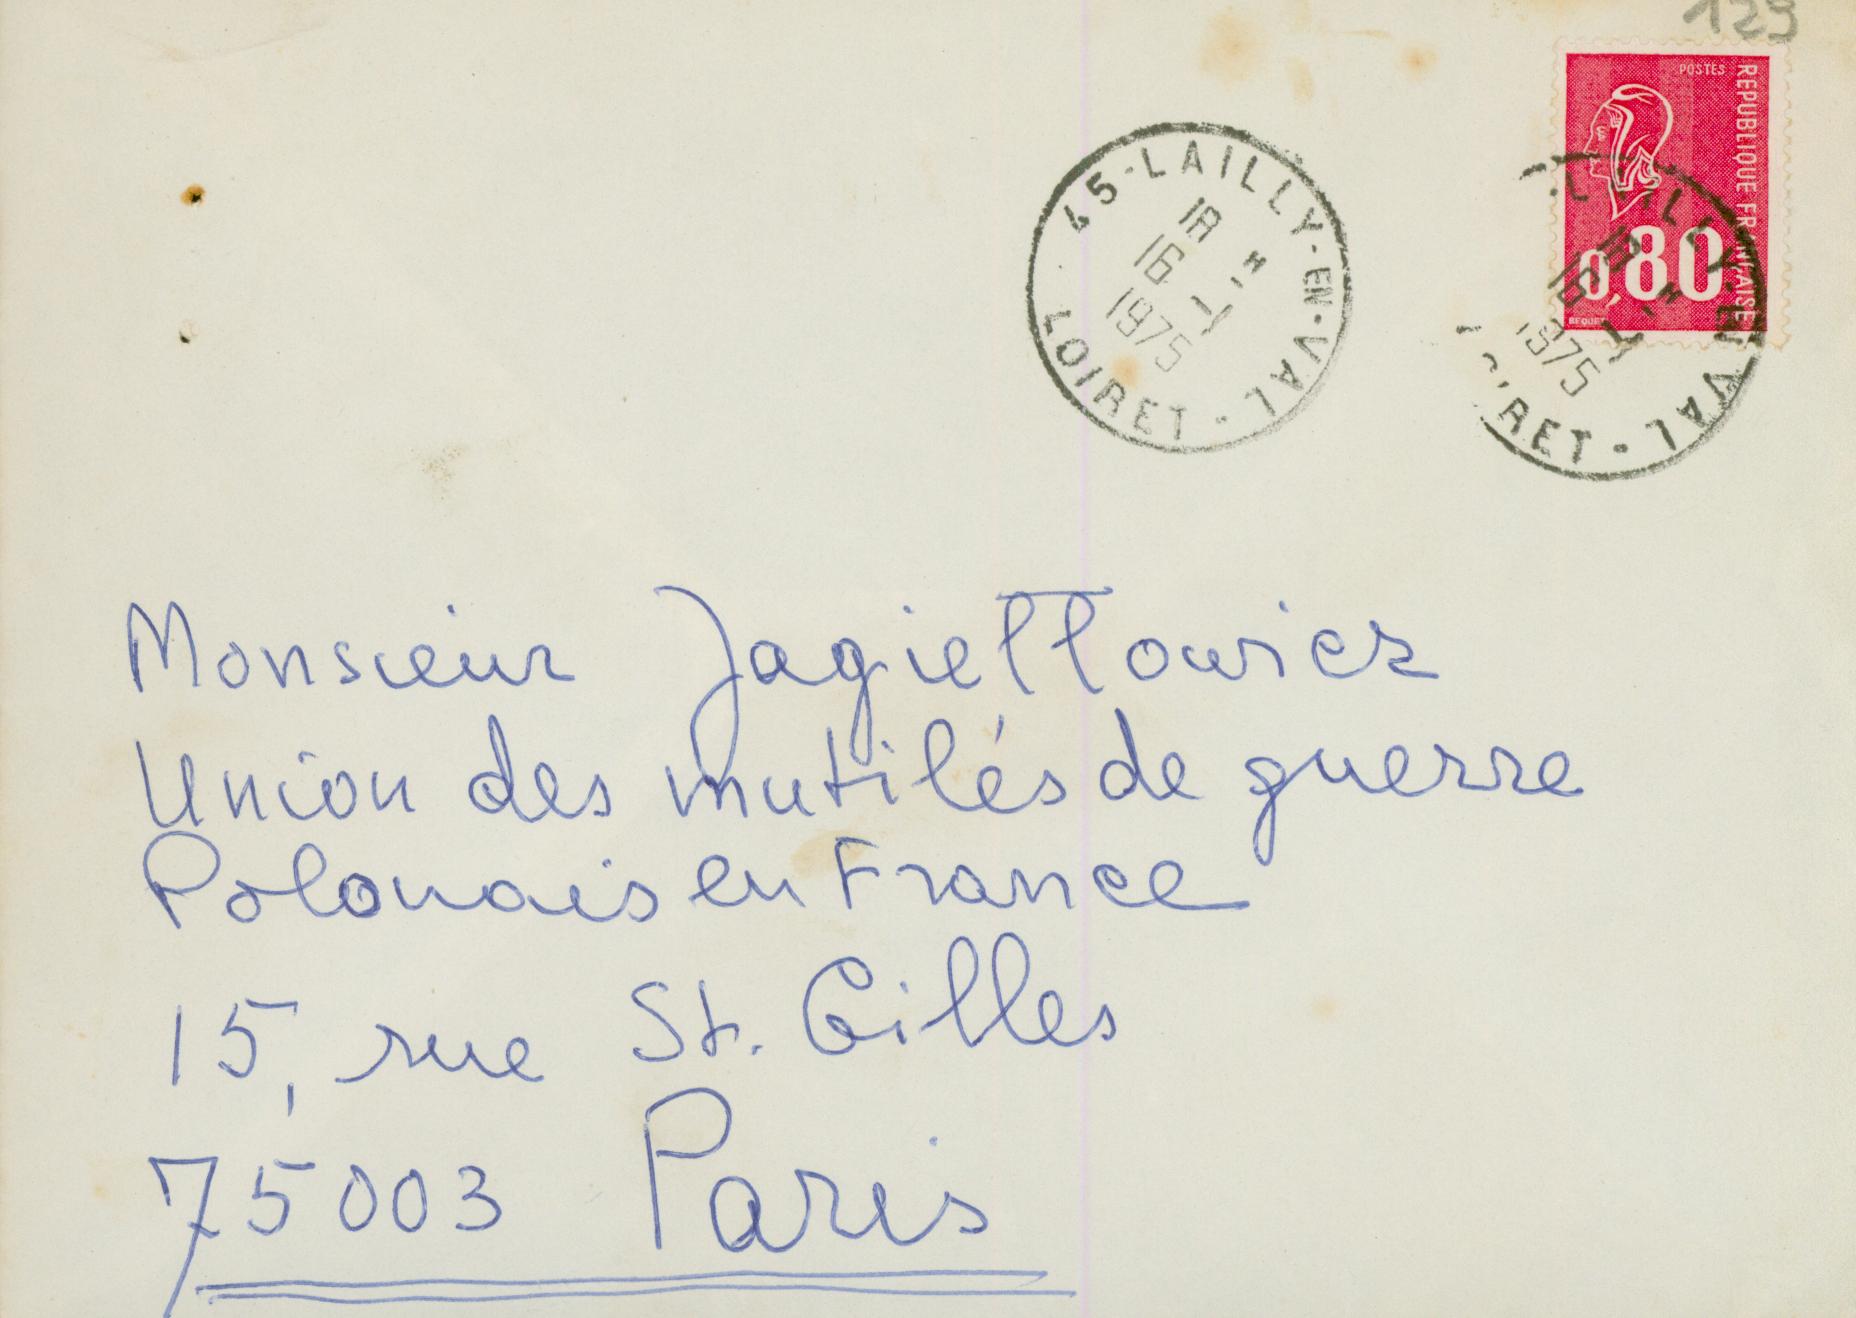 129
POSTES
REPUBLIQUE FRANCAISE
0,80
BEQUET
45-LAILLY-EN-VAL
18 H
16 - 1
1975
LOIRET
Monsieur Jagiellowicz
Union des mutilés de guerre
Polonais en France
15, rue St. Gilles
75003 Paris